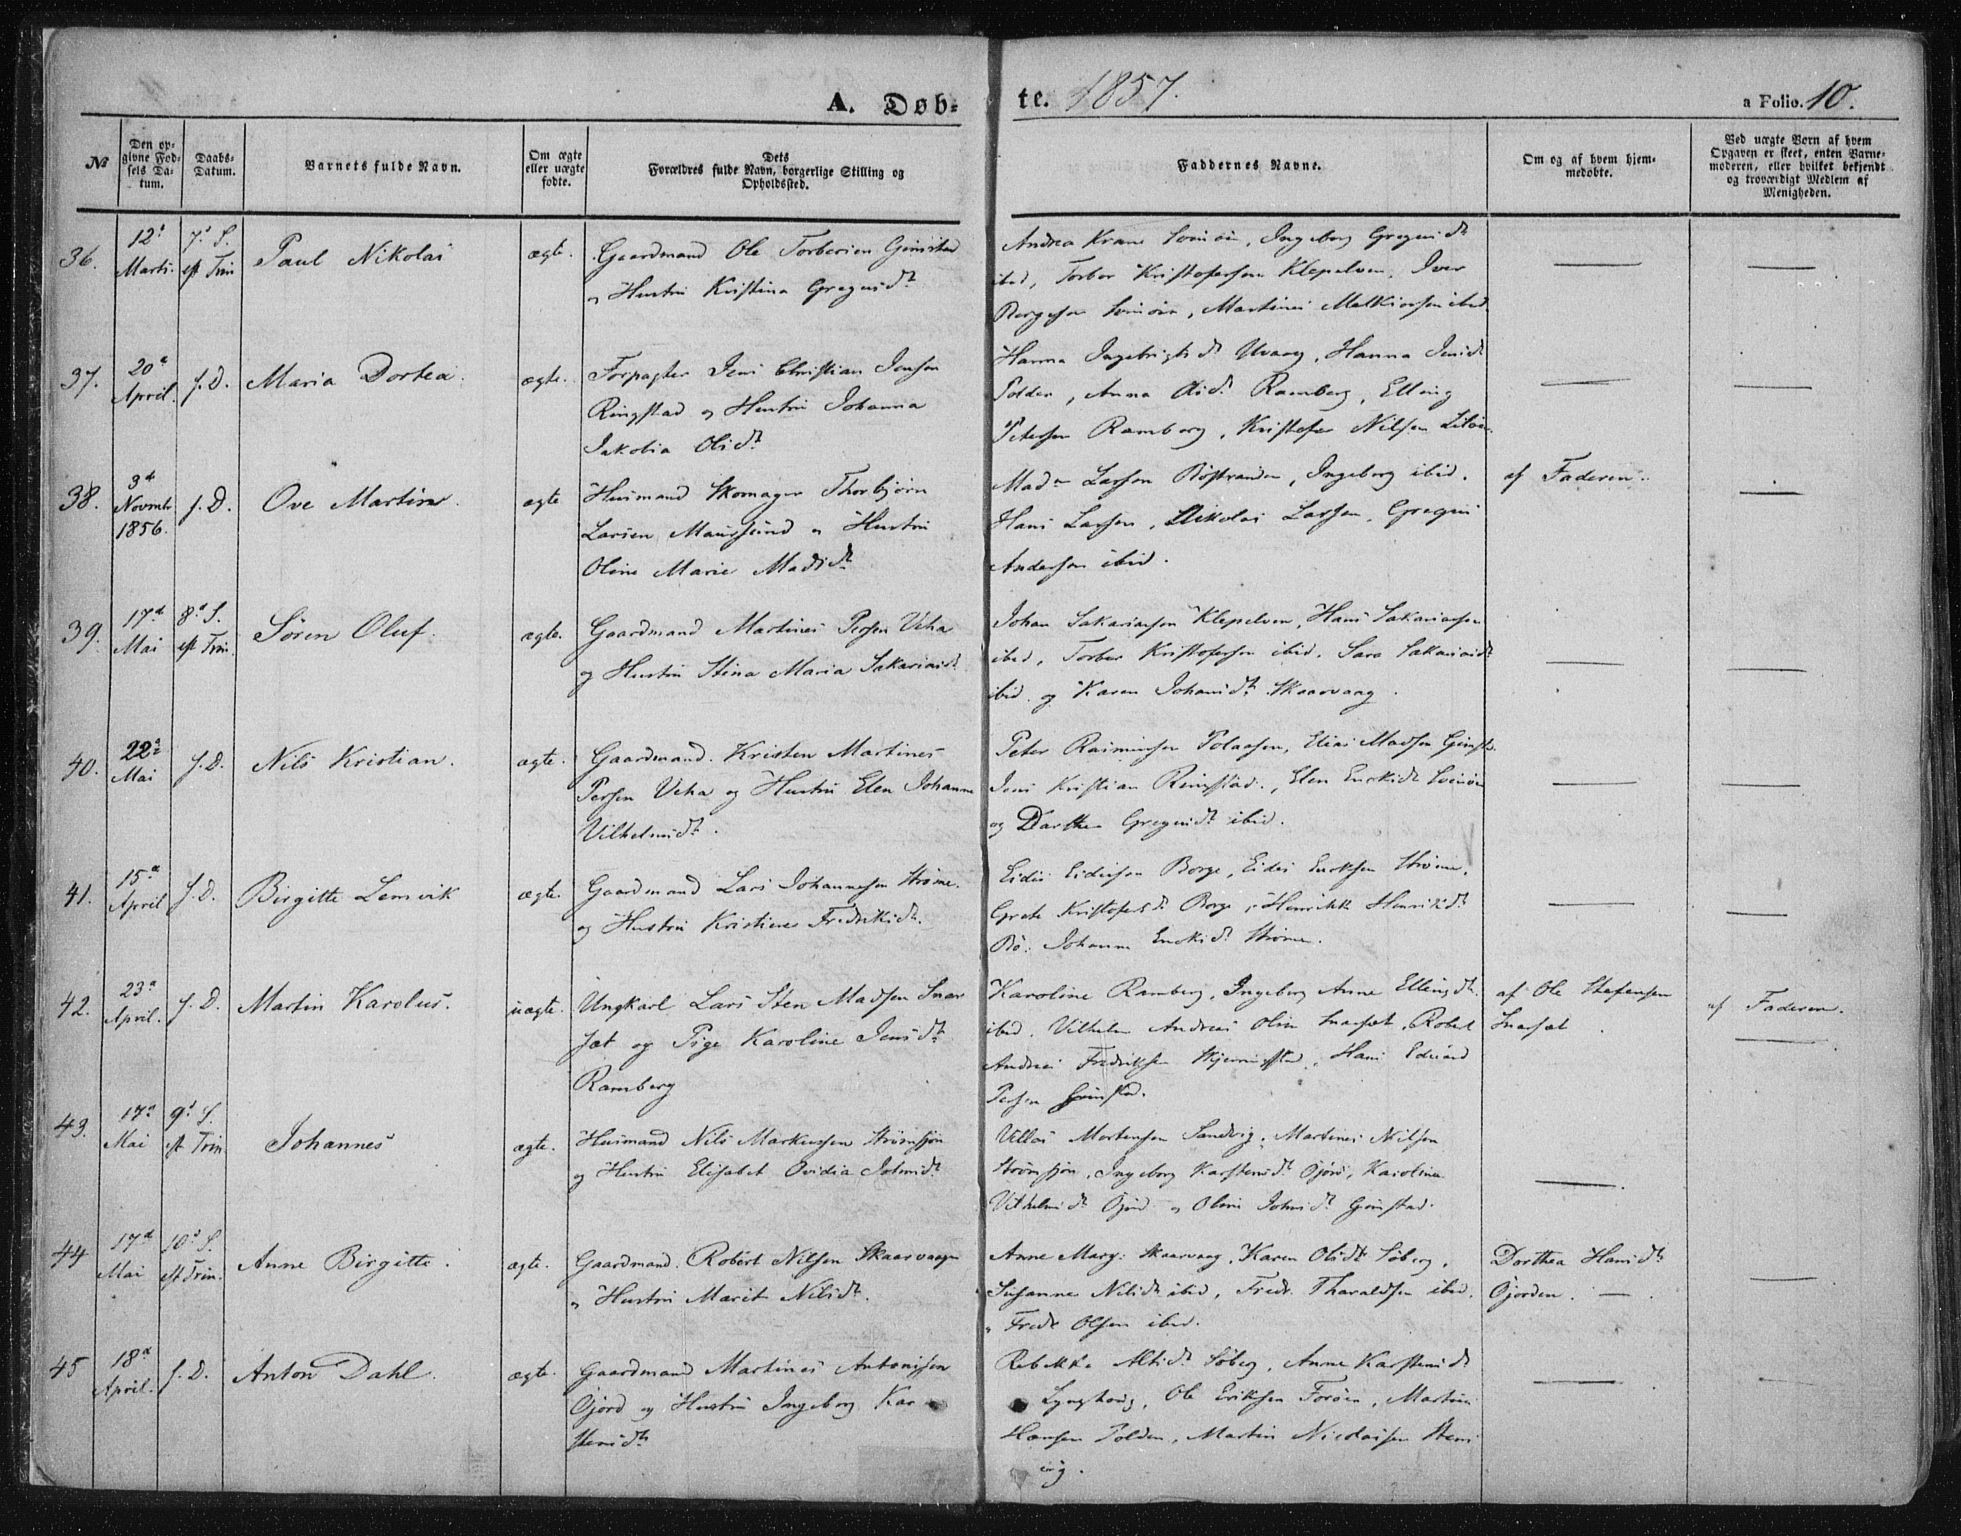 A. Døb-
te. 1857.
a Folio. 10.
No
Den opgivne Fødsels Datum.
Daabs-Datum.
Barnets fulde Navn.
Om ægte eller uægte fødte.
Dets Forældres fulde Navn, borgerlige Stilling og Opholdssted.
Faddernes Navne.
Om og af hvem hjemmedøbte.
Ved uægte Børn af hvem Opgaven er skeet, enten Barnemoderen, eller hvilket bekjendt og troværdigt Medlem af Menigheden.
36. 12' Marts. 7' S. eft Trin Paul Nikolai ægte. Gaardmand Ole Torbersen
og Hustru Kristina Gregersdt
Andrea Krane Svinöen, Ingeborg Gregersdt
ibid, Torber Kristofersen Klepelven, Iver
Borgesen Svinöen, Martines Melkiorsen ibid
37. 20d April. s. D. Maria Dortea. ægte. Forpagter Jens Christian Jensen
Ringstad og Hustru Johanna
Jakobia Olsdt
Hanna Ingebrigtsdt Uvaag, Hanna Jensdt
Polden, Anna Olsdt Ramberg, Elling
Petersen Ramberg, Kristofer Nilsen
38. 3d Novmbr 1856. s. D. Ove Martin. ægte Huusmand Skomager Thorbjørn
Larsen Maursund og Hustru
Oline Marie Madsdt
Mads Larsen Böstranden, Ingeborg ibid.
Hans Larsen, Nikolai Larsen, Gregus
Andersen ibid.
af Faderen.
39. 17d Mai 8d S. eft Trin. Søren Oluf. ægte. Gaardmand Martines Persen Veha
og Hustru Stina Maria Sakariasdt
Johan Sakariassen Klepelven, Hans Sakariassen
ibid, Torber Kristofersen ibid. Sara Sakariasdt
ibid. og Karen Johansdt Skaarvaag.
40. 22d Mai s. D. Nils Kristian. ægte. Gaardmand. Kristen Martines
Persen Veha og Hustru Elen Johanne
Vilhelmsdt.
Peter Rasmussen Polaasen, Elias Madsen
Jens Kristian Ringstad., Elen Eriksdt Svinöen
og Dorthea Gregersdt ibid.
41. 15d April s. D. Birgitte Lensvik ægte. Gaardmand Lars Johannesen Strøme.
og Hustru Kristine Fredriksdt.
Eidis Eidissen Borge, Eidis Eriksen Strøme,
Grete Kristofersdt Borge, Henrikke Henriksdt
Bö. Johanne Eriksdt Strøme.
42. 23d April. s. D. Martin Karolus. uægte. Ungkarl Lars Sten Madsen Snar
sæt og Pige Karoline Jensdt
Ramberg
Karoline Ramberg, Ingeborg Anne Ellingsdt
ibid. Vilhelm Andreas Olsen Snarsæt, Robert
Andreas Fredriksen Skjerningstad, Hans Edvard
Persen Ginstad.
af Ole Stefensen
Snarsæt.
af Faderen.
43. 17d Mai 9d S. eft Trin Johannes ægte. Huusmand Nils Markussen Strømsjön
og Hustru Elisabet Ovidia Johnsdt
Villas Mortensen Sandvig, Martines Nilsen
Strømsjön, Ingeborg Karstensdt Öjord, Karoline
Vilhelmsdt Öjord og Oline Johnsdt Ginstad.
44 17d Mai 10d S. eft Trin. Anne Birgitte. ægte. Gaardmand. Robert Nilsen Skaarvaagen
og Hustru Marit Nilsdt.
Anne Marg: Skaarvaag, Karen Olsdt Söberg,
Susanne Nilsdt ibid, Fredr. Tharaldsen ibid.
og Fredr Olsen ibid.
Dorthea Hansdt
Öjorden.
45 18d April. s. D. Anton Dahl. ægte. Gaardmand Martines Antonissen
Öjord og Hustru Ingeborg Kar
stensdt
Rebekka Altsdt Söberg, Anne Karstensdt
Lynghoug, Ole Eriksen Foröen, Martin
Hansen Polden, Martin Nicolaisen Stens
vig.